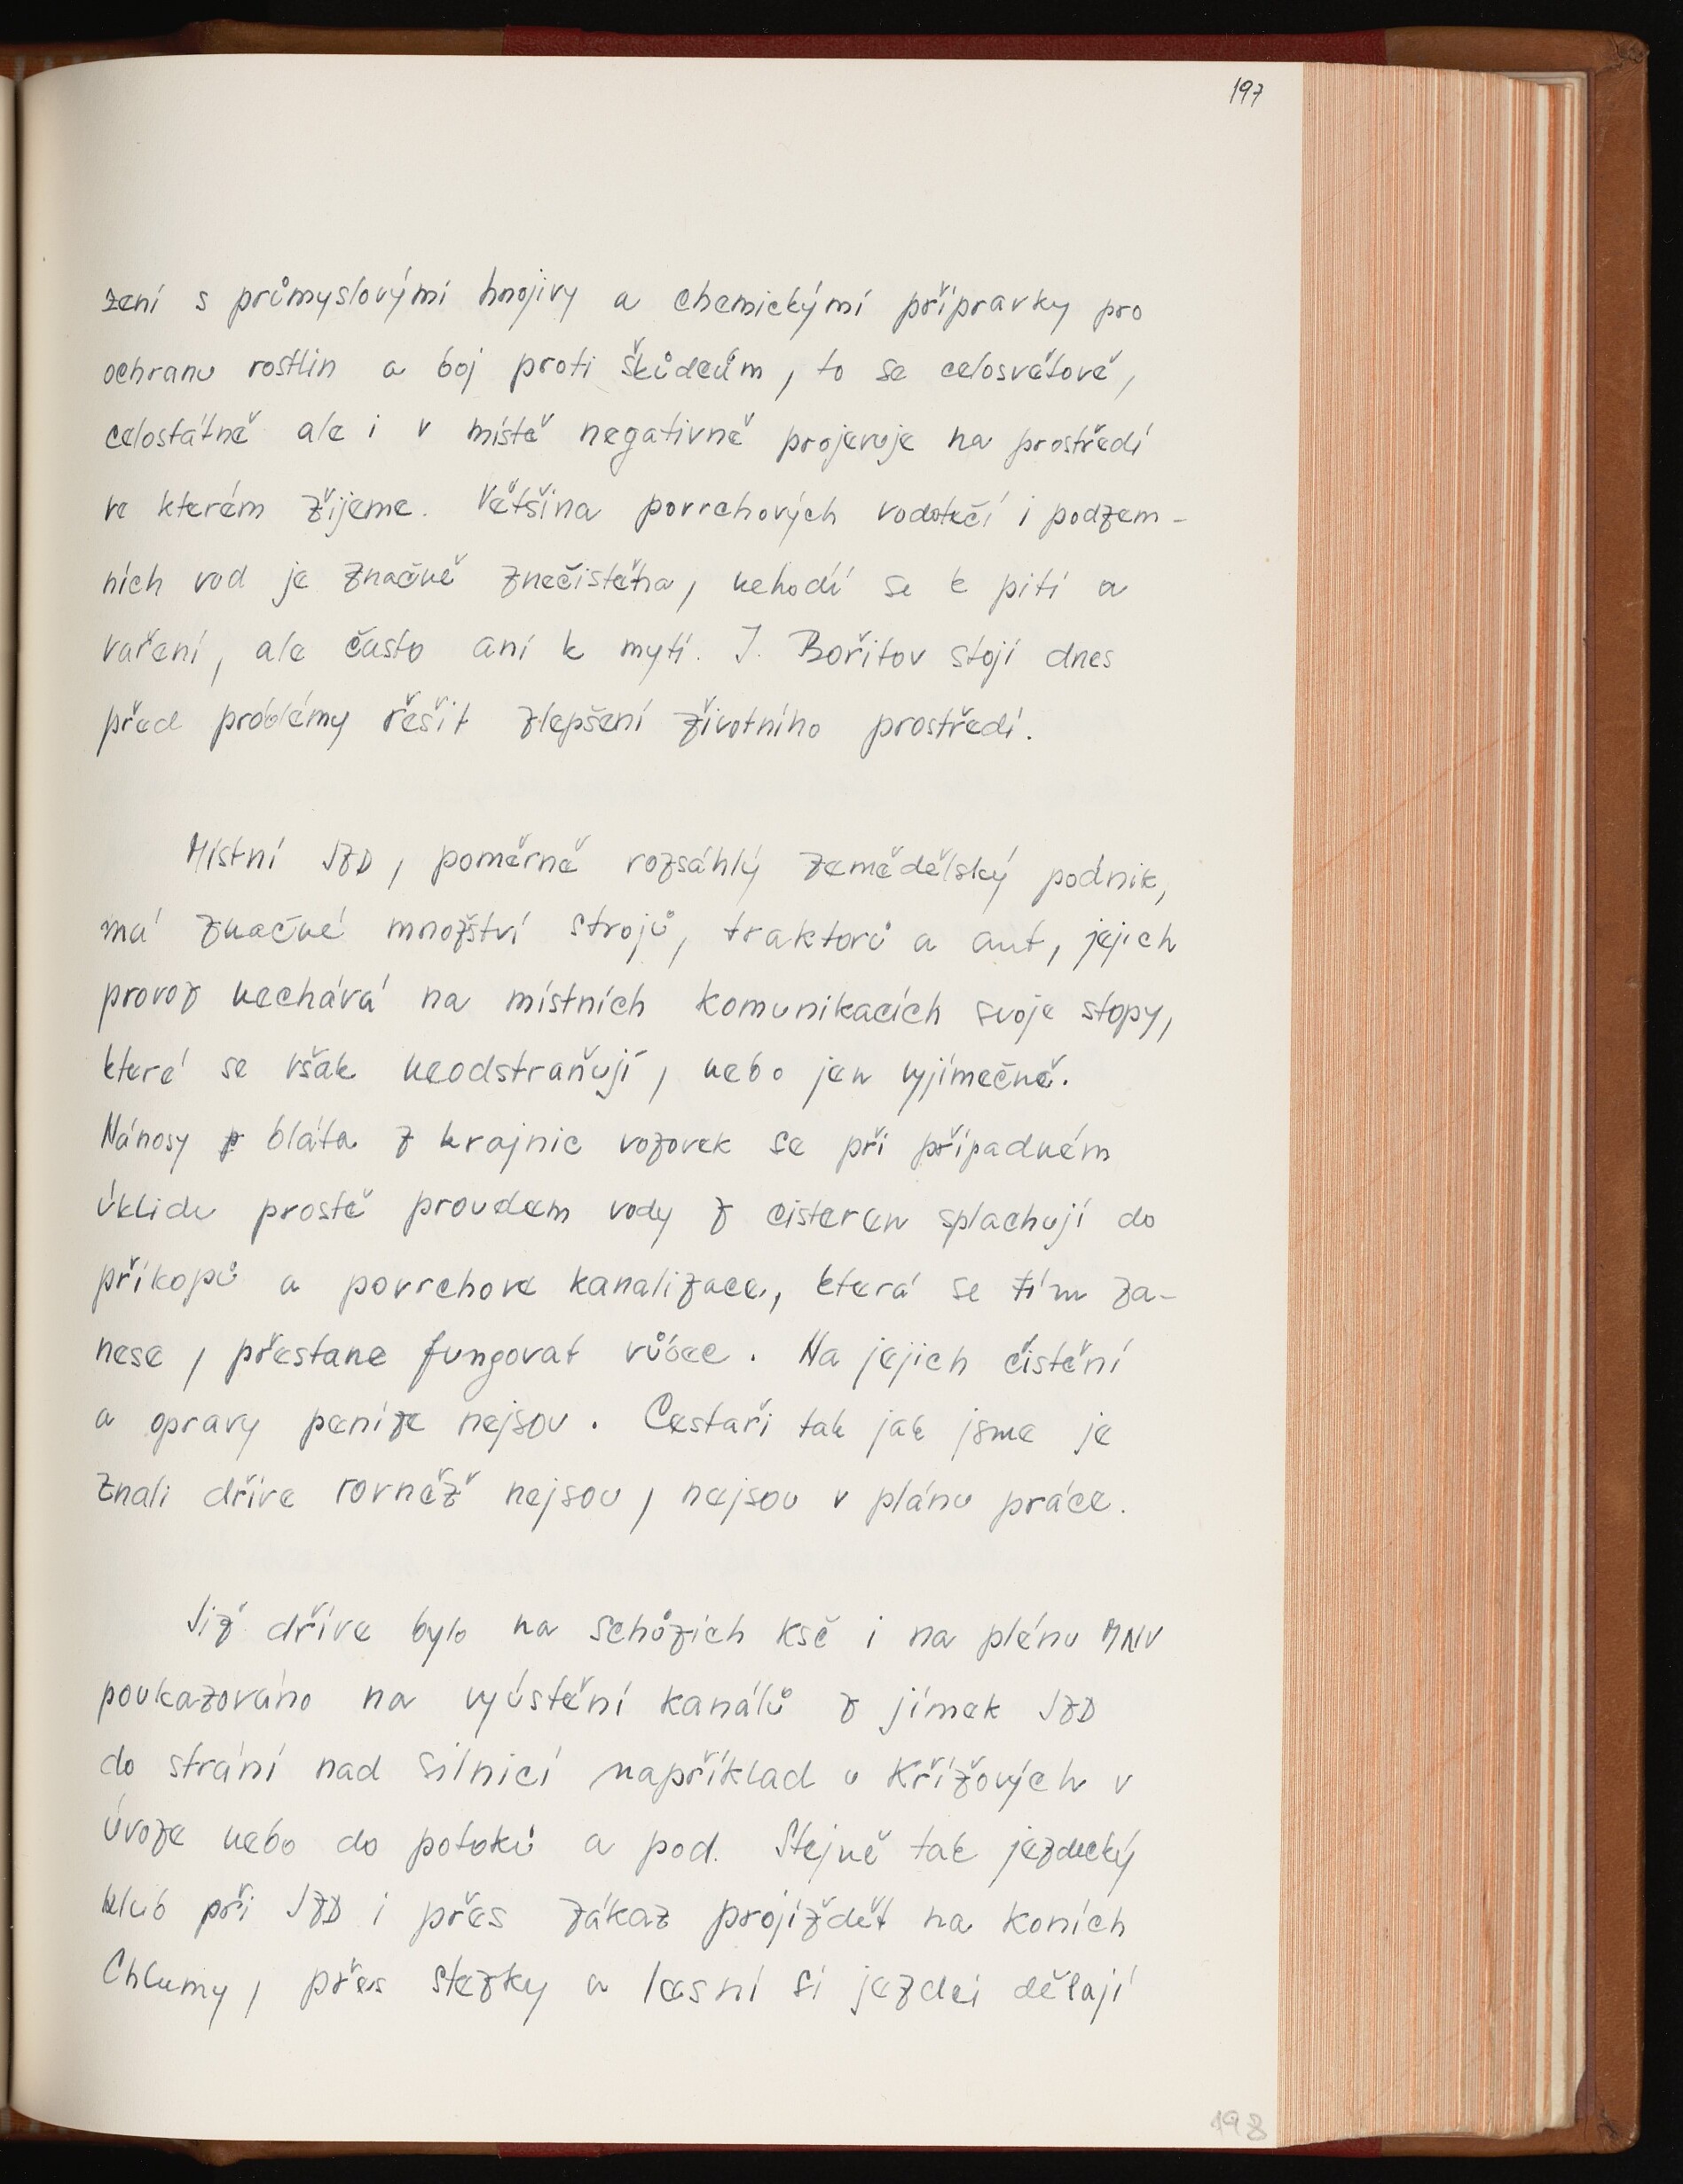 197
zení s průmyslovými hnojivy a chemickými přípravky pro
ochranu rostlin a boj proti škůdcům, to se celosvětově,
celostátně ale i v místě negativně projevuje na prostředí
ve kterém žijeme. Většina povrchových vodotečí i podzem-
ních vod je značně znečistěna, nehodí se k pití a
vaření, ale často ani k mytí. I. Bořitov stojí dnes
před problémy řešit zlepšení životního prostředí.
Místní JZD, poměrně rozsáhlý zemědělský podnik,
má značné množství strojů, traktorů a aut, jejich
provoz nechává na místních komunikacích svoje stopy,
které se však neodstraňují, nebo jen vyjímečně.
Nánosy bláta z krajnic vozovek se při případném
úklidu prostě proudem vody z cisteren splachují do
příkopů a povrchove kanalizace, která se tím za-
nese, přestane fungovat vůbec. Na jejich čistění
a opravy peníze nejsou. Cestaři tak jak jsme je
znali dříve rovněž nejsou, nejsou v plánu práce.
Již dříve bylo na schůzích ksč i na plénu MNV
poukazováno na vyústění kanálů z jímek JZD
do strání nad silnicí například u Křížových v
úvoze nebo do potoků a pod. Stejně tak jezdecký
klub při JZD i přes zákaz projíždět na koních
Chlumy, přes stezky a lesní si jezdci dělají
198